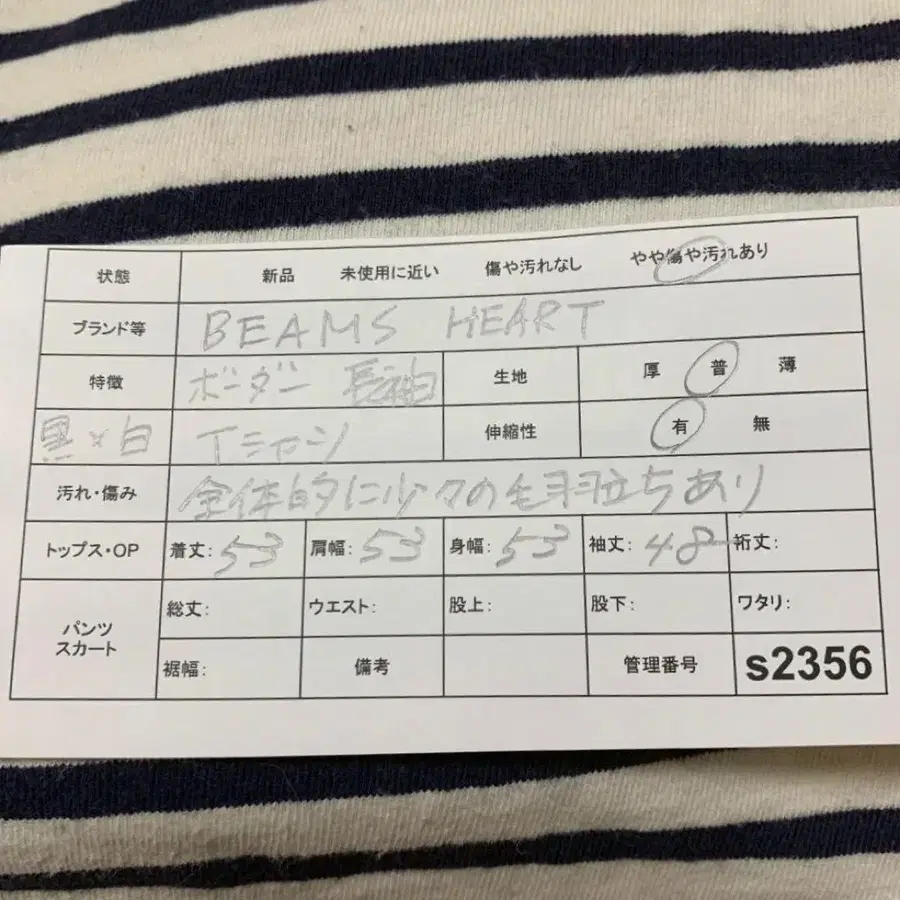 状態 新品 未使用に近い 傷や汚れなし やや傷や汚れあり
ブランド等 BEAMS HEART
特徴 ボーダー 長袖 生地 厚 普 薄
黒×白 Tシャツ 伸縮性 有 無
汚れ・傷み 全体的に少々の毛羽立ちあり
トップス・OP 着丈: 53 肩幅: 53 身幅: 53 袖丈: 48 裄丈:
パンツ スカート 総丈: ウエスト: 股上: 股下: ワタリ:
裾幅: 備考 管理番号 s2356